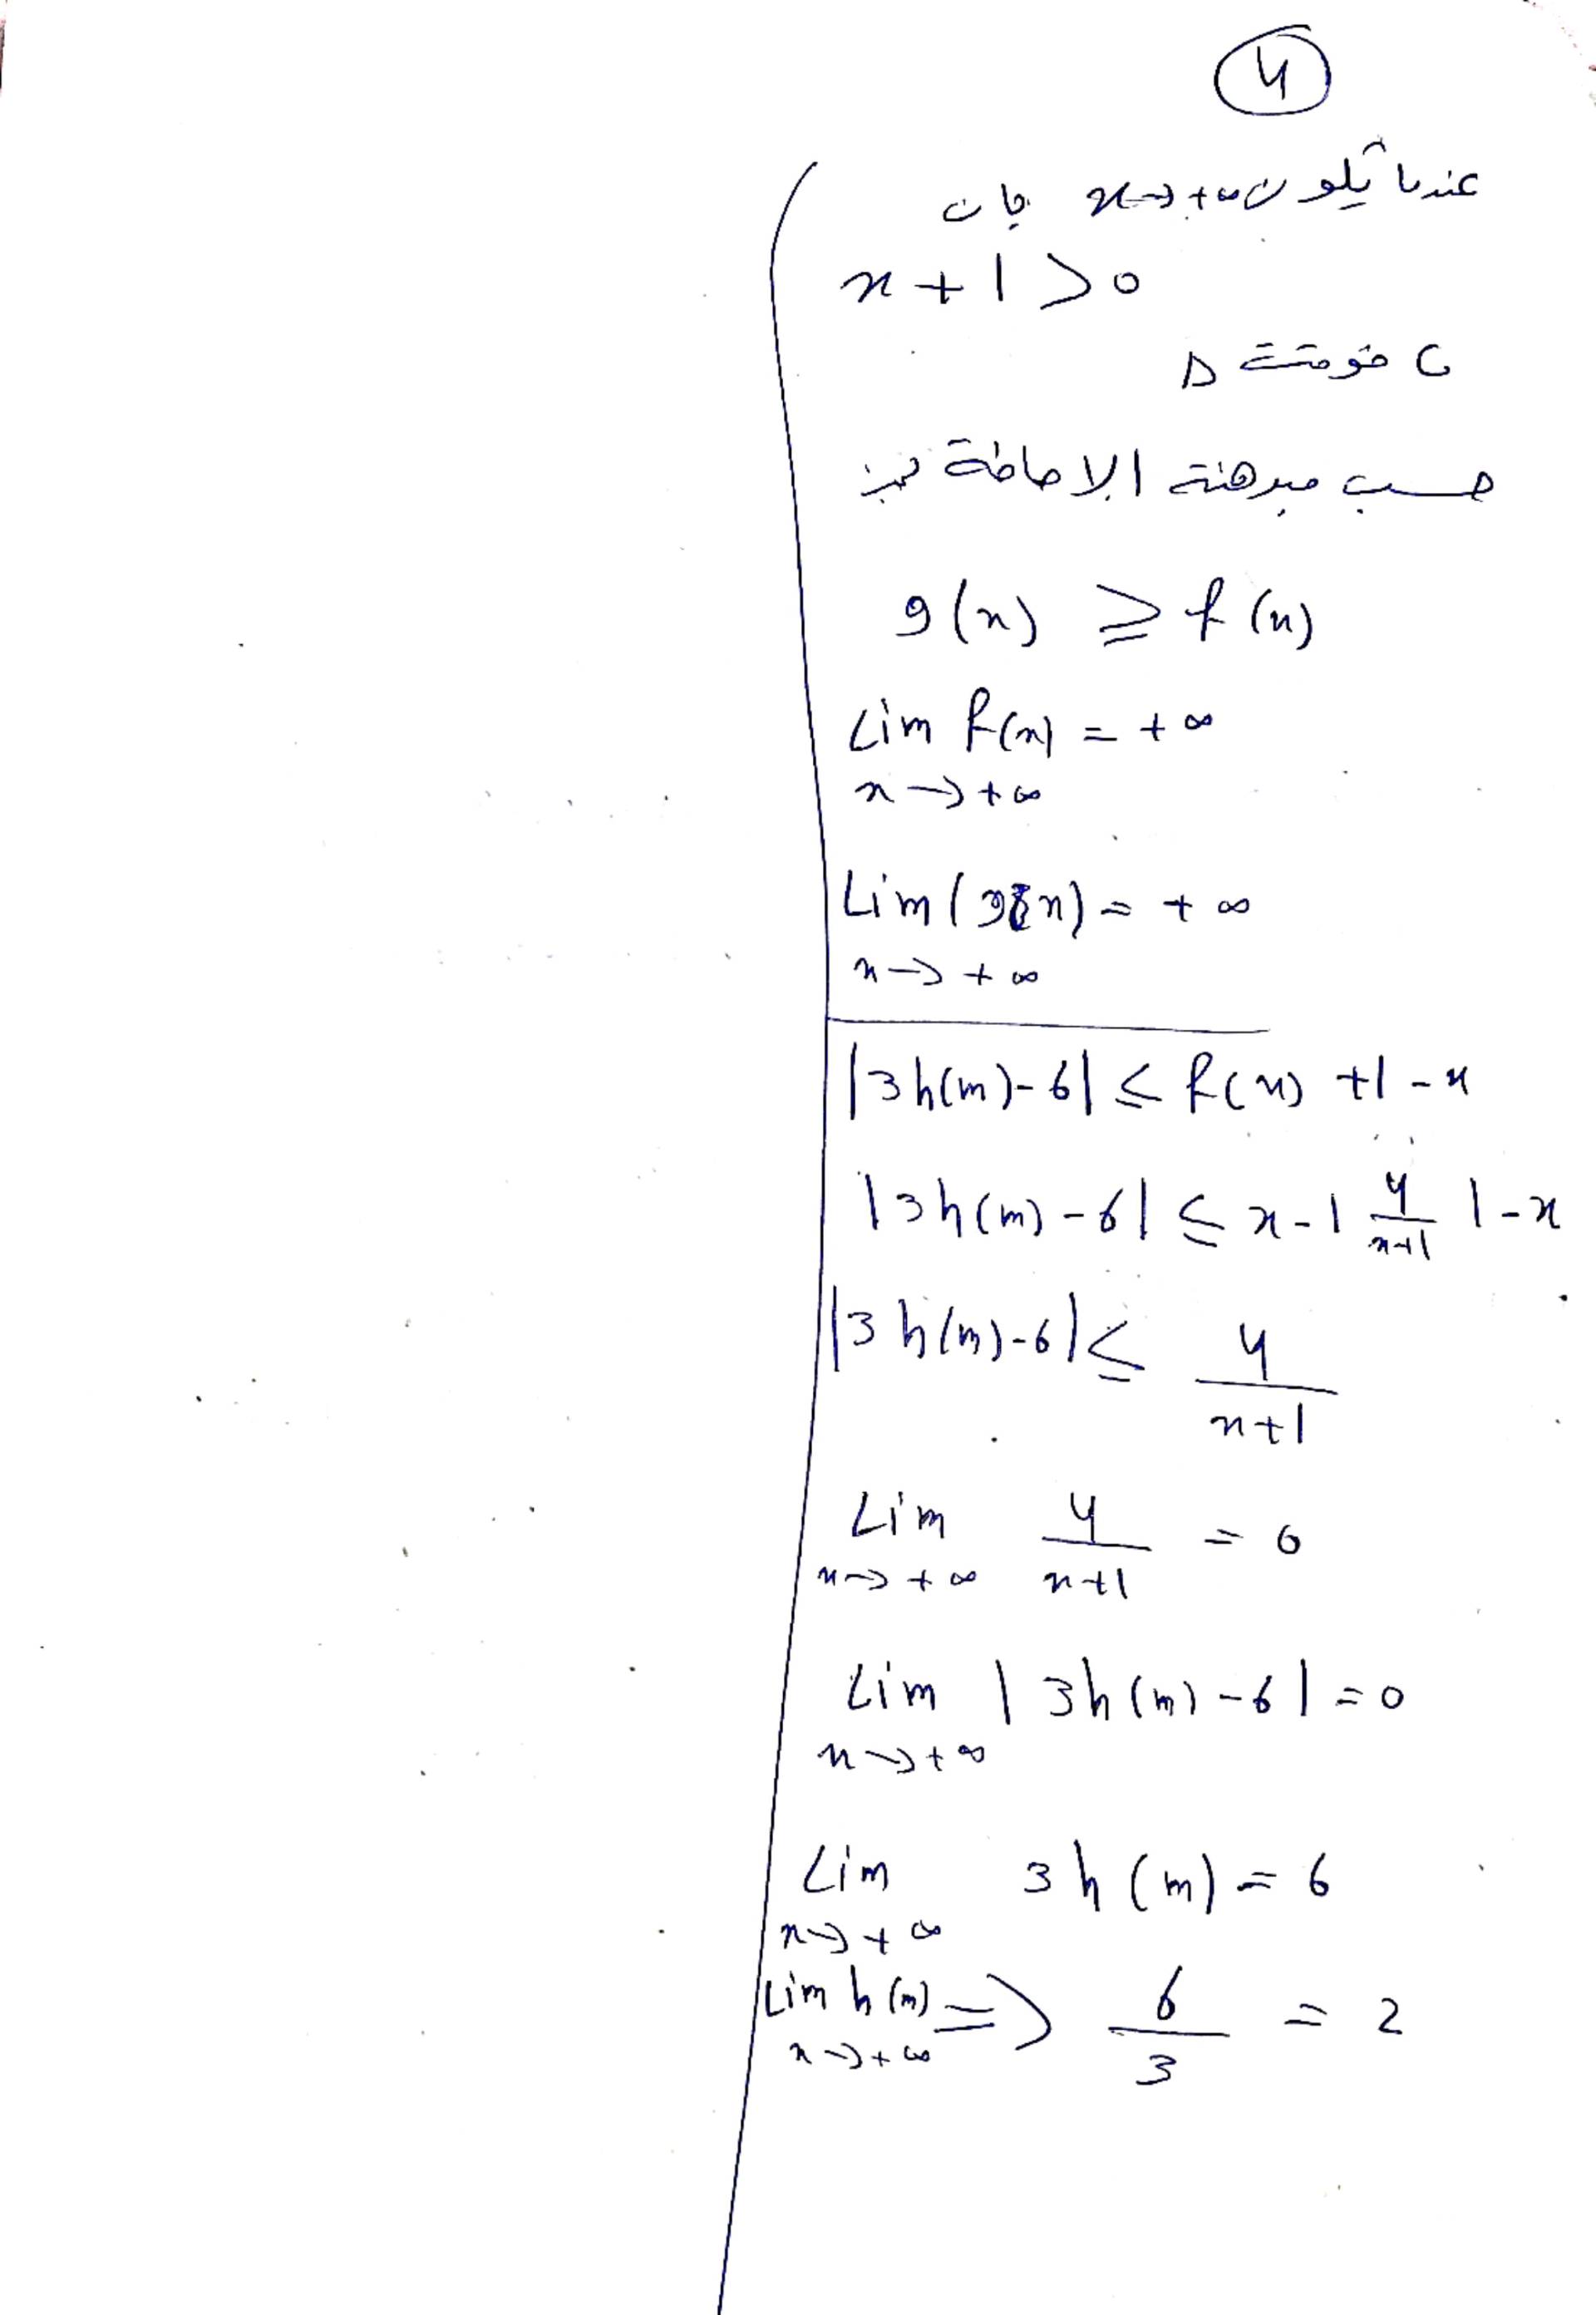 4
عندما تكون x→+∞ فإن
x+1>0
C فوق Δ
حسب مبرهنة الإحاطة
g(x) ≥ f(x)
Lim f(x) = +∞
x→+∞
Lim (g(x) = +∞
x→+∞
|3h(m)-6| ≤ f(x) +1-x
|3h(m)-6| ≤ x-1 4/(x+1) 1-x
|3h(m)-6| ≤ 4/(x+1)
Lim 4/(x+1) = 0
x→+∞
Lim |3h(m)-6| = 0
x→+∞
Lim 3h(m) = 6
x→+∞
Lim h(m) => 6/3 = 2
x→+∞